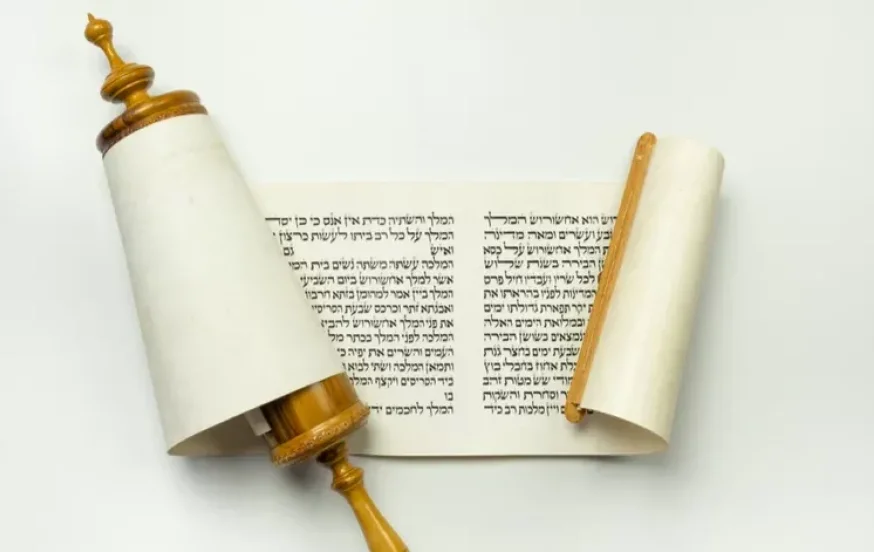 הוא אחשורוש המלך
שבע ועשרים ומאה מדינה
המלך אחשורוש על כסא
הבירה בשנת שלוש
לכל שריו ועבדיו חיל פרס
המדינות לפניו בהראתו את
יקר תפארת גדולתו ימים
ובמלואת הימים האלה
הנמצאים בשושן הבירה
שבעת ימים בחצר גנת
אחוז בחבלי בוץ
שש מטות זהב
וסחרת והשקות
ויין מלכות רב כיד
המלך והשתיה כדת אין אנס כי כן יסד
המלך על כל רב ביתו לעשות כרצון
ואיש גם
המלכה עשתה משתה נשים בית
אשר למלך אחשורוש ביום השביעי
המלך ביין אמר למהומן בזתא
ואבגתא זתר וכרכס שבעת
את פני המלך אחשורוש להביא
המלכה לפני המלך בכתר
העמים והשרים את יפיה כי
ותמאן המלכה ושתי לבוא
ביד הסריסים ויקצף המלך
בו
המלך לחכמים